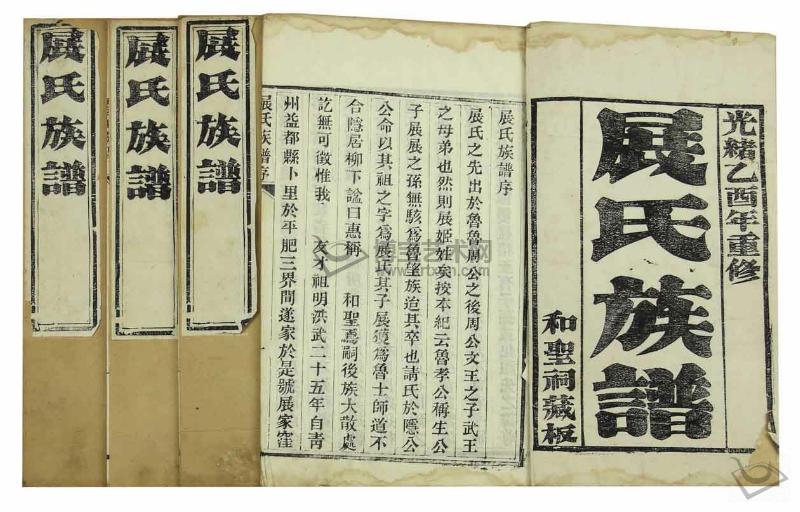 光緒乙酉年重修
展氏族譜
和聖祠藏板
展氏族譜序
展氏之先出於魯魯周公之後周公文王之子武王
之母弟也然則展姬姓矣按本紀云魯孝公稱生公
子展展之孫無駭為魯望族迨其卒也請氏於隱公
公命以其祖之字為展氏其子展獲為魯士師道不
合隱居柳下諡曰惠稱 和聖焉嗣後族大散處
訖無可徵惟我 友才祖明洪武二十五年自青
州益都縣卜里於平肥三界間遂家於是號展家窪
展氏族譜序
展氏族譜
展氏族譜
展氏族譜
博宝艺术网
www.artxun.com